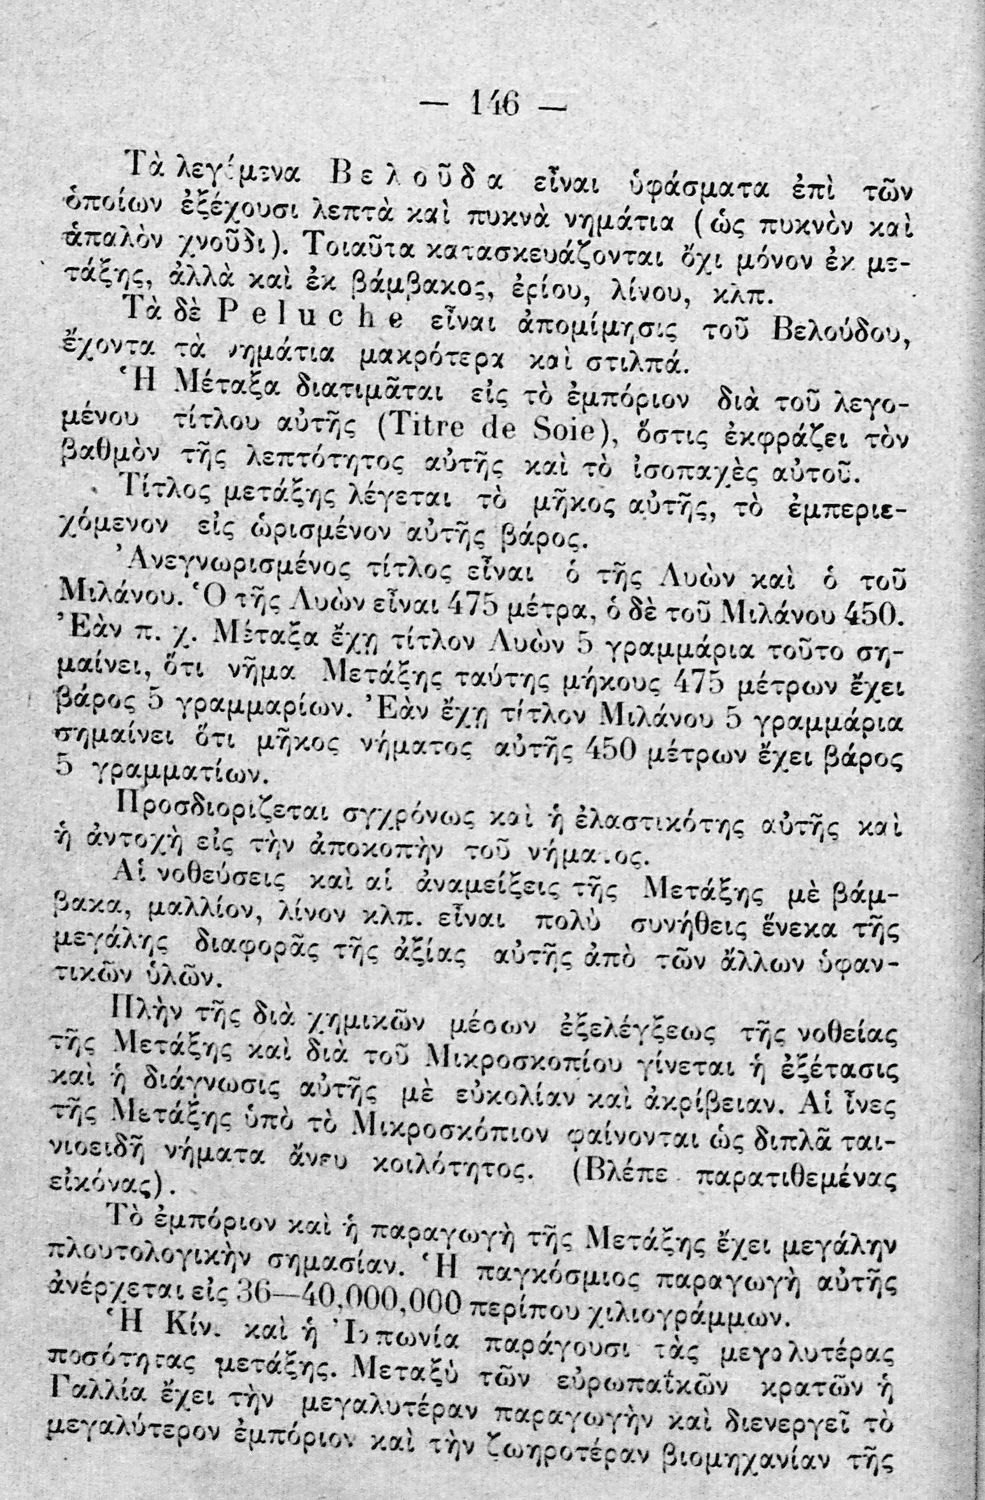 — 146 —
Τὰ λεγόμενα Βελοῦδα εἶναι ὑφάσματα ἐπὶ τῶν
ὁποίων ἐξέχουσι λεπτὰ καὶ πυκνὰ νημάτια (ὡς πυκνὸν καὶ
ἁπαλὸν χνοῦδι). Τοιαῦτα κατασκευάζονται ὄχι μόνον ἐκ με-
τάξης, ἀλλὰ καὶ ἐκ βάμβακος, ἐρίου, λίνου, κλπ.
Τὰ δὲ Peluche εἶναι ἀπομίμησις τοῦ Βελούδου,
ἔχοντα τὰ νημάτια μακρότερα καὶ στιλπά.
Ἡ Μέταξα διατιμᾶται εἰς τὸ ἐμπόριον διὰ τοῦ λεγο-
μένου τίτλου αὐτῆς (Titre de Soie), ὅστις ἐκφράζει τὸν
βαθμὸν τῆς λεπτότητος αὐτῆς καὶ τὸ ἰσοπαχὲς αὐτοῦ.
Τίτλος μετάξης λέγεται τὸ μῆκος αὐτῆς, τὸ ἐμπεριε-
χόμενον εἰς ὡρισμένον αὐτῆς βάρος.
Ἀνεγνωρισμένος τίτλος εἶναι ὁ τῆς Λυὼν καὶ ὁ τοῦ
Μιλάνου. Ὁ τῆς Λυὼν εἶναι 475 μέτρα, ὁ δὲ τοῦ Μιλάνου 450.
Ἐὰν π. χ. Μέταξα ἔχῃ τίτλον Λυὼν 5 γραμμάρια τοῦτο ση-
μαίνει, ὅτι νῆμα Μετάξης ταύτης μήκους 475 μέτρων ἔχει
βάρος 5 γραμμαρίων. Ἐὰν ἔχῃ τίτλον Μιλάνου 5 γραμμάρια
σημαίνει ὅτι μῆκος νήματος αὐτῆς 450 μέτρων ἔχει βάρος
5 γραμματίων.
Προσδιορίζεται συγχρόνως καὶ ἡ ἐλαστικότης αὐτῆς καὶ
ἡ ἀντοχὴ εἰς τὴν ἀποκοπὴν τοῦ νήματος.
Αἱ νοθεύσεις καὶ αἱ ἀναμείξεις τῆς Μετάξης μὲ βάμ-
βακα, μαλλίον, λίνον κλπ. εἶναι πολὺ συνήθεις ἕνεκα τῆς
μεγάλης διαφορᾶς τῆς ἀξίας αὐτῆς ἀπὸ τῶν ἄλλων ὑφαν-
τικῶν ὑλῶν.
Πλὴν τῆς διὰ χημικῶν μέσων ἐξελέγξεως τῆς νοθείας
τῆς Μετάξης καὶ διὰ τοῦ Μικροσκοπίου γίνεται ἡ ἐξέτασις
καὶ ἡ διάγνωσις αὐτῆς μὲ εὐκολίαν καὶ ἀκρίβειαν. Αἱ ἶνες
τῆς Μετάξης ὑπὸ τὸ Μικροσκόπιον φαίνονται ὡς διπλᾶ ται-
νιοειδῆ νήματα ἄνευ κοιλότητος. (Βλέπε παρατιθεμένας
εἰκόνας).
Τὸ ἐμπόριον καὶ ἡ παραγωγὴ τῆς Μετάξης ἔχει μεγάλην
πλουτολογικὴν σημασίαν. Ἡ παγκόσμιος παραγωγὴ αὐτῆς
ἀνέρχεται εἰς 36—40,000,000 περίπου χιλιογράμμων.
Ἡ Κίν. καὶ ἡ Ἰαπωνία παράγουσι τὰς μεγαλυτέρας
ποσότητας μετάξης. Μεταξὺ τῶν εὐρωπαϊκῶν κρατῶν ἡ
Γαλλία ἔχει τὴν μεγαλυτέραν παραγωγὴν καὶ διενεργεῖ τὸ
μεγαλύτερον ἐμπόριον καὶ τὴν ζωηροτέραν βιομηχανίαν τῆς